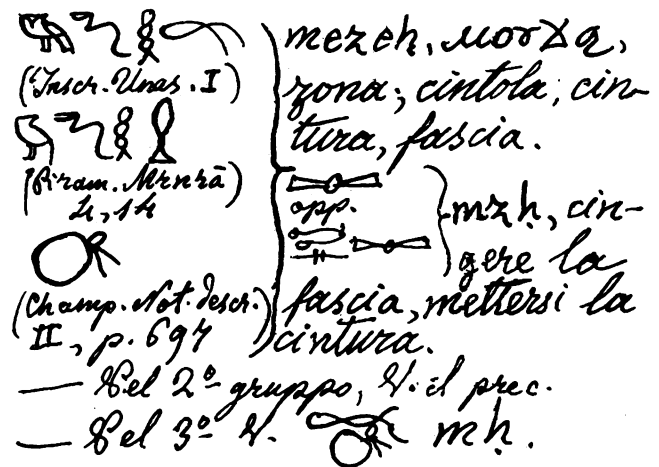 (Inscr. Unas. I)
(Piram. Mrnrā)
(Champ. Not. descr.
II, p. 697)
mezeḥ,
zona; cintola; cin-
tura, fascia.
opp.
mzḥ, cin-
gere la
fascia, mettersi la
cintura.
— Pel 2º gruppo, V. il prec.
— Pel 3º V. mḥ.